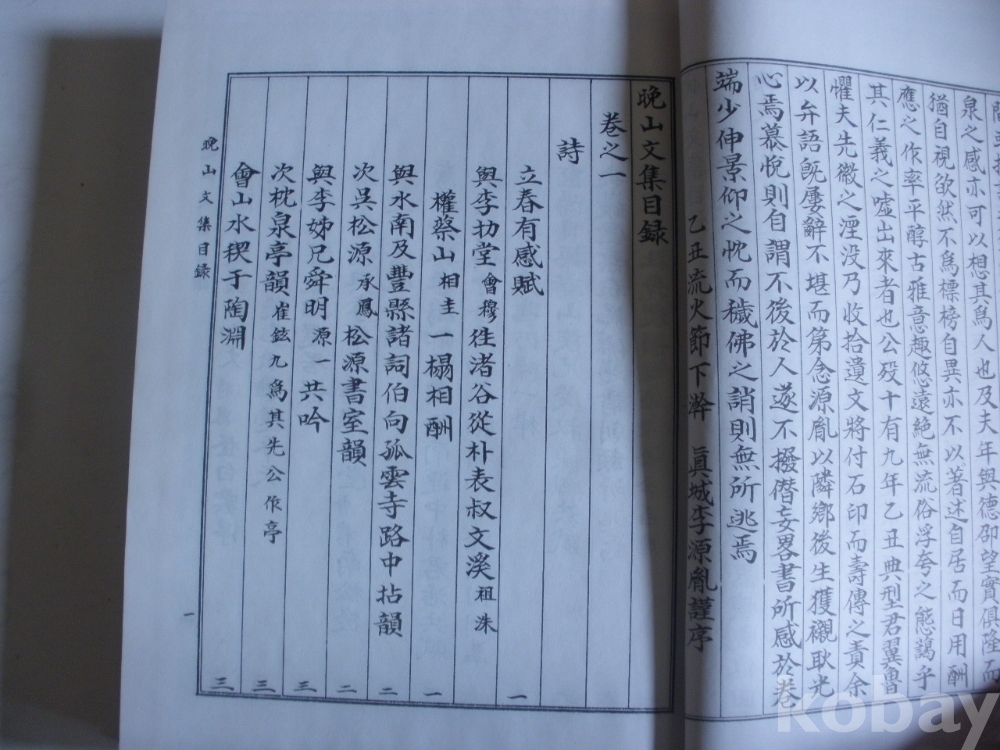 泉之感亦可以想其爲人也及夫年與德卲望實俱隆而
猶自視欿然不爲標榜自異亦不以著述自居而日用酬
應之作率平醇古雅意趣悠遠絶無流俗浮夸之態藹乎
其仁義之噓出來者也公歿十有九年乙丑典型君翼曺
懼夫先徽之湮没乃收拾遺文將付石印而壽傳之責余
以弁語旣屢辭不堪而第念源胤以隣鄉後生獲襯耿光
心焉慕悅則自謂不後於人遂不撥僭妄畧書所感於卷
端少伸景仰之忱而穢佛之誚則無所逃焉
乙丑流火節下澣 眞城李源胤謹序
晩山文集目録
卷之一
詩
立春有感賦 一
與李抝堂會穆徃渚谷從朴表叔文溪祖洙
權蔡山相圭一榻相酬 一
與水南及豐縣諸詞伯向孤雲寺路中拈韻 二
次吳松源承鳳松源書室韻 二
與李姊兄舜明源一共吟 三
次枕泉亭韻崔鉉九爲其先公作亭 三
會山水稧于陶淵 三
晩山文集目錄
一
kobay